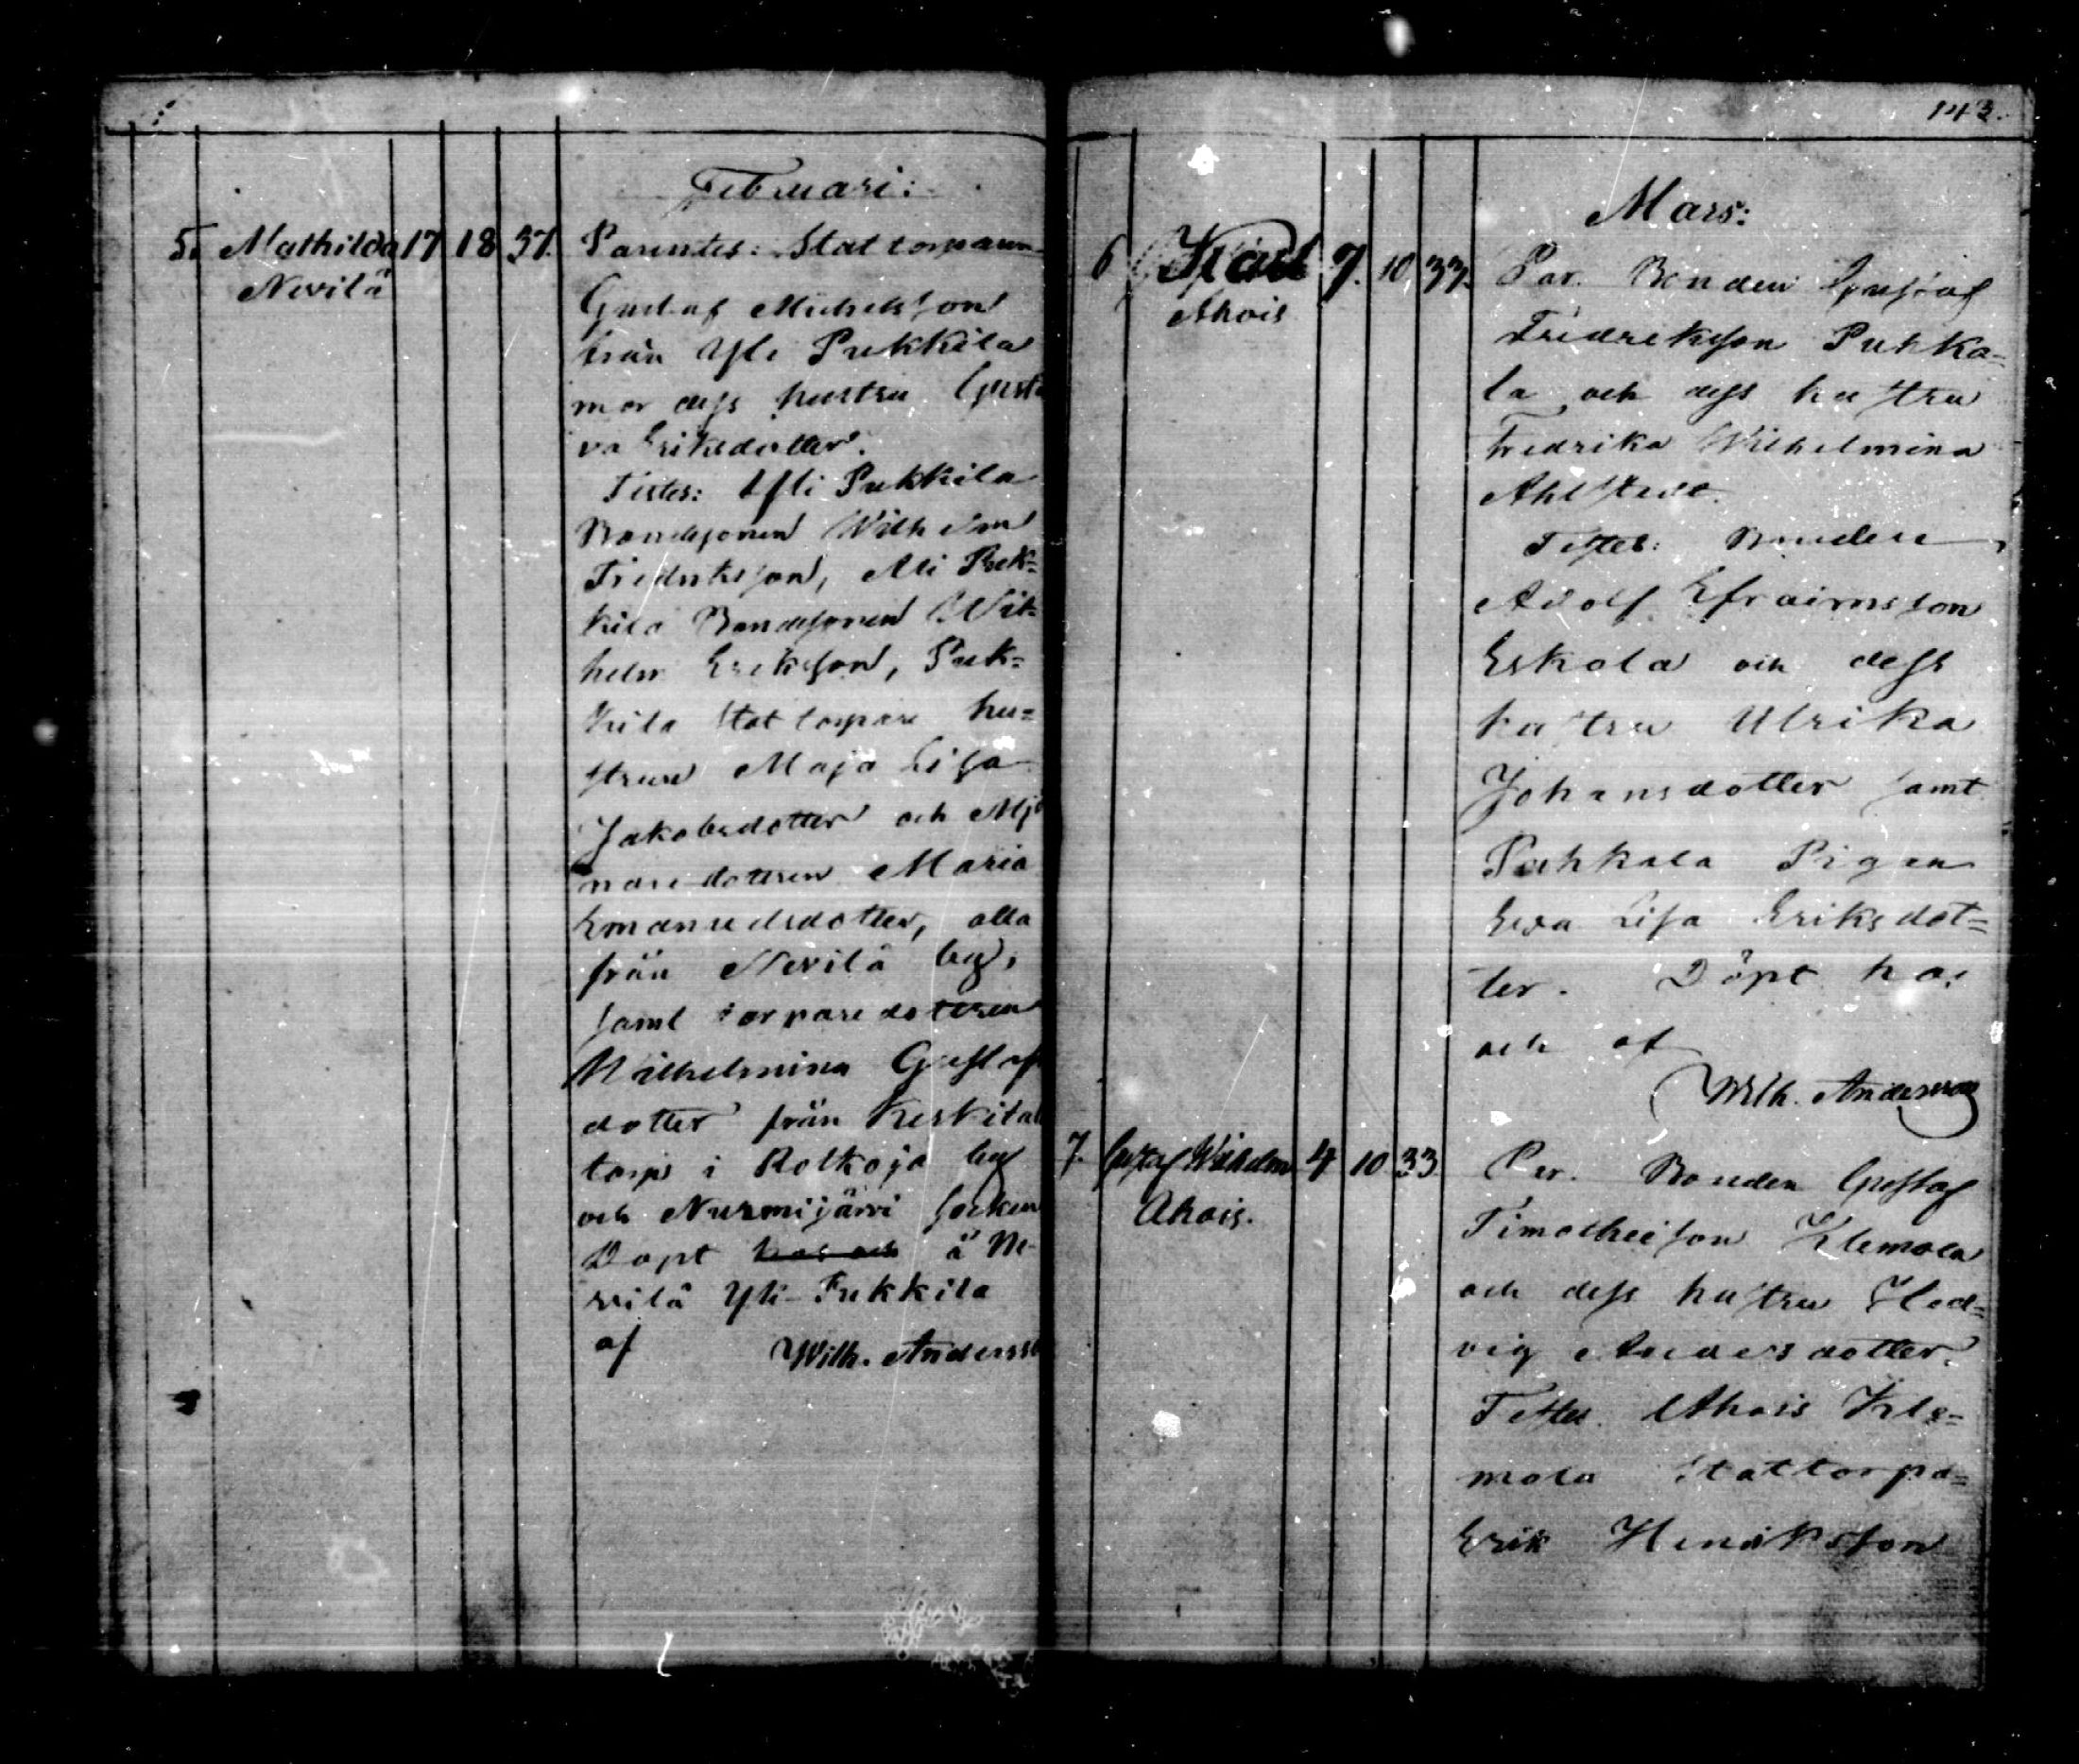 Februari:
5. Mathilda 17 18 37. Parentes: Stattorparen
Nevilä
Gustaf Michelsson
från Yli Pukkila
mor dess hustru Gusta
va Eriksdotter.
Testes: Yli Pukkila
Bondesonen Wilhelm
Fredriksson, Ali Puk=
kila Bondesonen Wil=
helm Eriksson, Puk=
kila Stattorpare hu=
strun Maja Lisa
Jakobsdotter och
naredottren Maria
Emanuelsdotter, alla
från Nevilä by,
samt torparedottren
Wilhelmina Gustafs
dotter från Keskitalo
torp i Rotkoja by
och Nurmijärvi Socken
Döpt hos och å Ne-
vilä Yli-Pukkila
af Wilh. Andersso
143.
Mars:
6 Karl 7. 10. 33. Par. Bonden Gustaf
Ahois
Fredriksson Puhka=
la och dess hustru
Fredrika Wilhelmina
Ahlstedt.
Testes: Bonden
Adolf Efraimsson
Eskola och dess
hustru Ulrika
Johansdotter samt
Puhkala Pigan
Eva Lisa Eriksdot=
ter. Döpt hos
och af
Wilh. Andersson
7. Gustaf Wilhelm 4 10 33. Par. Bonden Gustaf
Ahois.
Timotheisson Klemola
och dess hustru Hed=
vig Andersdotter.
Testes Ahois Kle=
mola Stattorpa=
Erik Henriksson